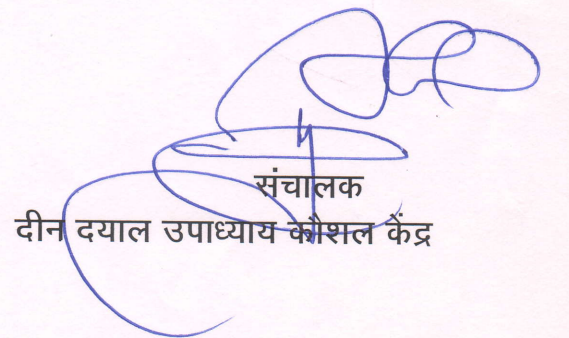 संचालक
दीन दयाल उपाध्याय कौशल केंद्र